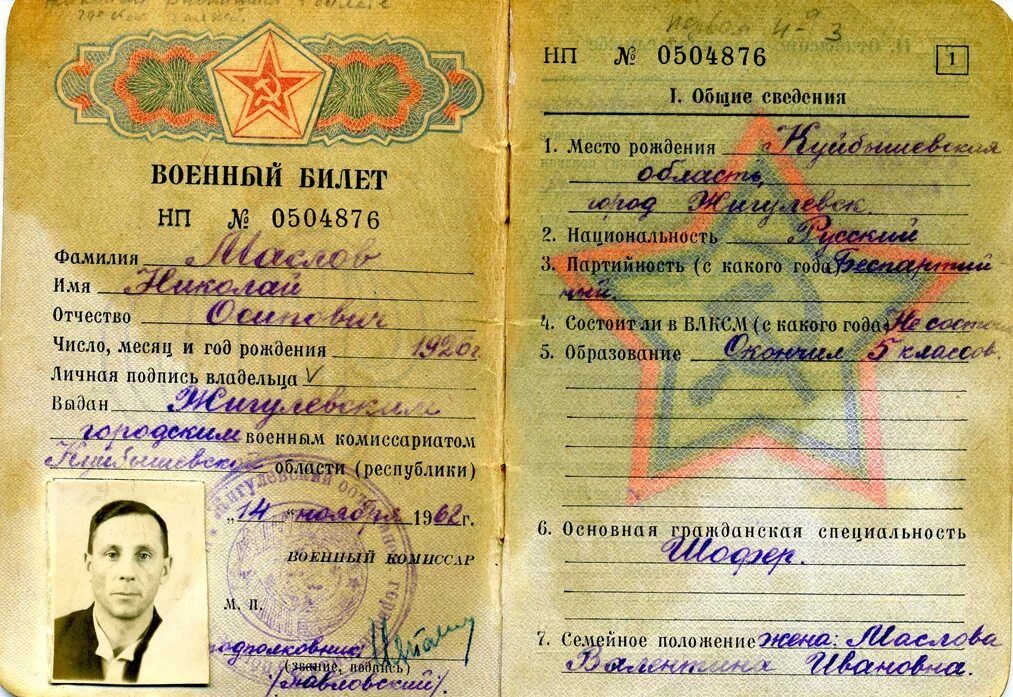 ВОЕННЫЙ БИЛЕТ
НП № 0504876
Фамилия Маслов
Имя Николай
Отчество Осипович
Число, месяц и год рождения 1920г.
Личная подпись владельца
Выдан Жигулевским
городским военным комиссариатом
Куйбышевской области (республики)
„14 “ ноября 1962 г.
ВОЕННЫЙ КОМИССАР
М. П.
подполковник
(звание, подпись)
(Павловский).
НП № 0504876
1
I. Общие сведения
1. Место рождения Куйбышевская
область,
город Жигулевск.
2. Национальность Русский
3. Партийность (с какого года) Беспартий
ный.
4. Состоит ли в ВЛКСМ (с какого года) Не состоит
5. Образование Окончил 5 классов.
6. Основная гражданская специальность
Шофер.
7. Семейное положение жена: Маслова
Валентина Ивановна.